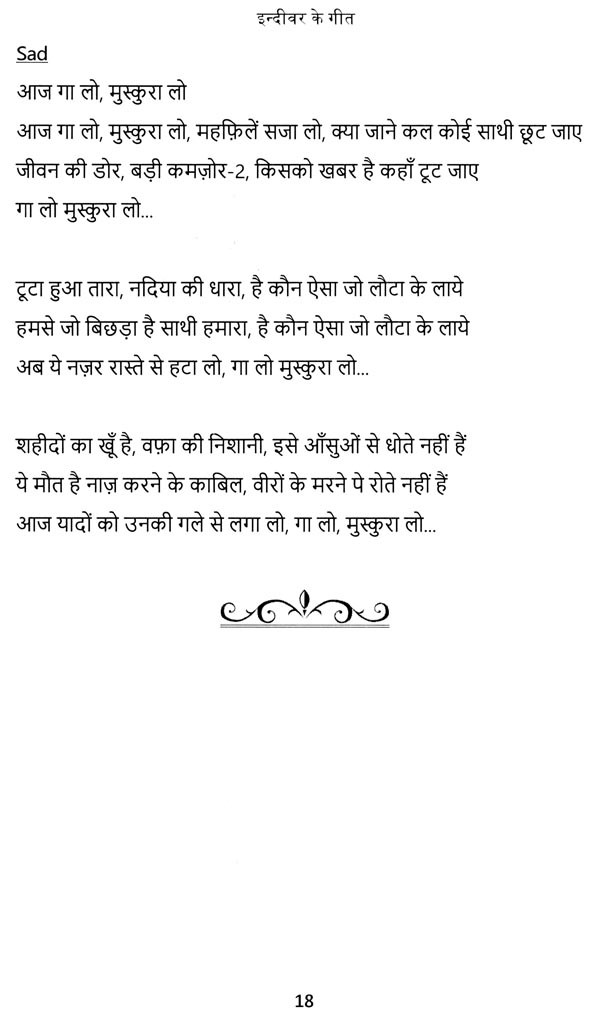 इन्दीवर के गीत
Sad
आज गा लो, मुस्कुरा लो
आज गा लो, मुस्कुरा लो, महफ़िलें सजा लो, क्या जाने कल कोई साथी छूट जाए
जीवन की डोर, बड़ी कमज़ोर-2, किसको खबर है कहाँ टूट जाए
गा लो मुस्कुरा लो...
टूटा हुआ तारा, नदिया की धारा, है कौन ऐसा जो लौटा के लाये
हमसे जो बिछड़ा है साथी हमारा, है कौन ऐसा जो लौटा के लाये
अब ये नज़र रास्ते से हटा लो, गा लो मुस्कुरा लो...
शहीदों का खूँ है, वफ़ा की निशानी, इसे आँसुओं से धोते नहीं हैं
ये मौत है नाज़ करने के काबिल, वीरों के मरने पे रोते नहीं हैं
आज यादों को उनकी गले से लगा लो, गा लो, मुस्कुरा लो...
18